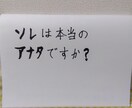 ソレは本当の
アナタですか?